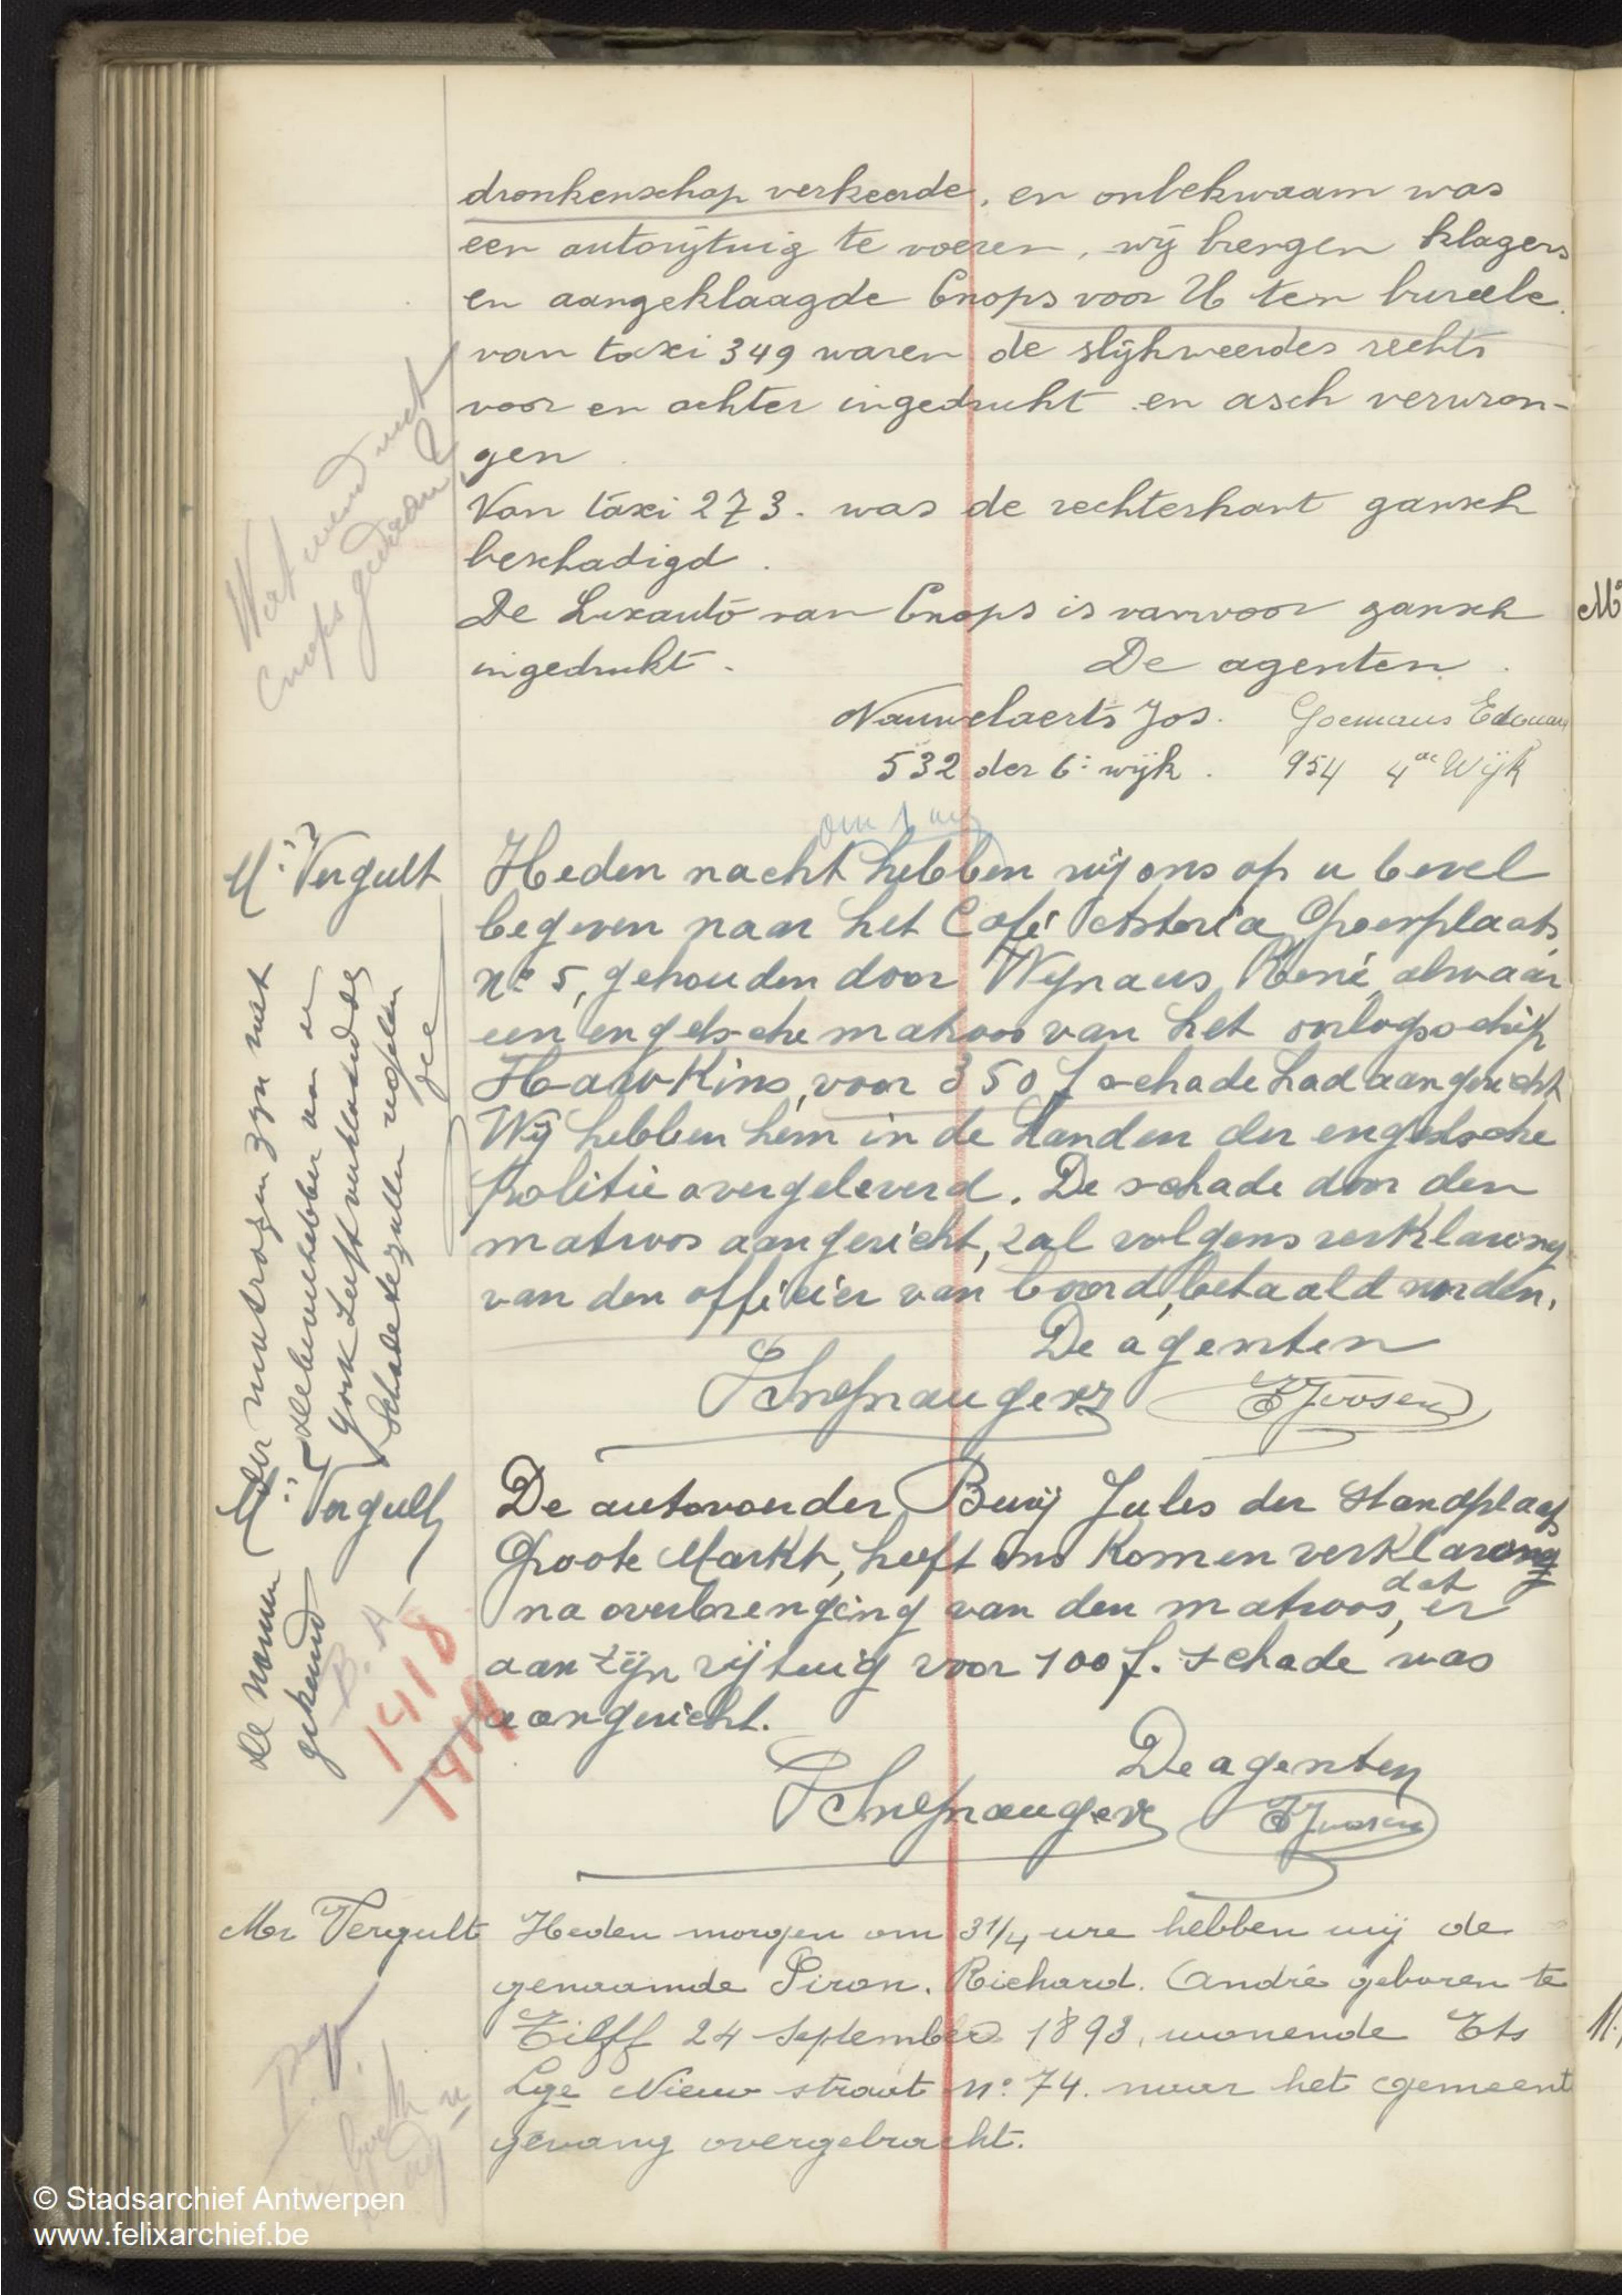 dronkenschap verkeerde, en onbekwaam was
een autorijtuig te voeren, wij brengen klagers
en aangeklaagde Cnops voor U ten bureele.
van taxi 349 waren de slijkweerdes rechts
voor en achter ingedrukt en asch verwron-
gen
Van taxi 273. was de rechterkant gansch
beschadigd.
De Luxauto van Cnops is vanvoor gansch
ingedrukt. De agenten.
Nauwelaerts Jos. Goemans Edouard
532 der 6e wijk. 954 4de Wijk
Wat werd met
Cnops gedaan?
om 1 ure
Mr Vergult
Heden nacht hebben wij ons op u bevel
begeven naar het Café Astoria Groenplaats
no 5, gehouden door Wynaus René, alwaar
een engelsche matroos van het oorlogschip
Hawkins, voor 350 f schade had aangericht
Wij hebben hem in de handen der engelsche
Politie overgeleverd. De schade door den
matroos aangericht, zal volgens verklaring
van den officier van boord, betaald worden.
De agenten
EJoosen
De namen der matrozen zijn niet
gekend
schade te zullen regelen
Mr Vergult
De autovoerder Buuij Jules der Standplaats
Groote Markt, heeft ons komen verklaring
na overbrenging van den matroos, dat er
aan zijn rijtuig voor 100 f. schade was
aangericht.
De agenten
EJoosen
B.A.
1418
1419
Mr Vergult
Heden morgen om 3 1/4 ure hebben wij de
genaamde Piron. Richard. André geboren te
Tilff 24 September 1893, wonende Ets
Lge Nieuw straat no 74. naar het gemeent
gevang overgebracht.
© Stadsarchief Antwerpen
www.felixarchief.be